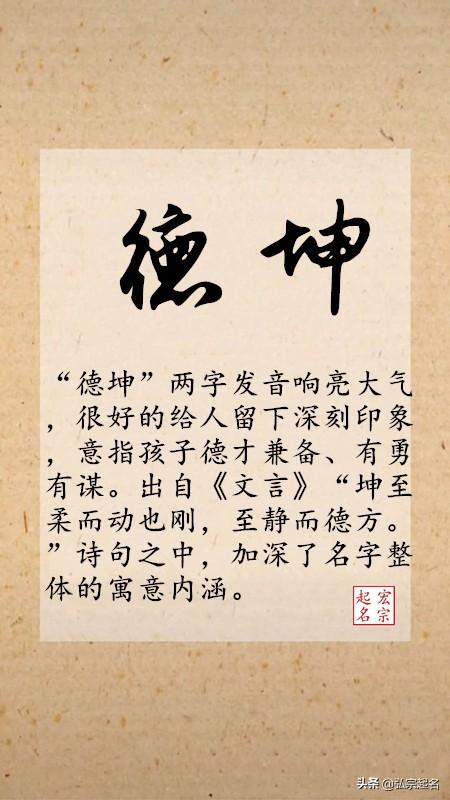 德坤
“德坤”两字发音响亮大气
，很好的给人留下深刻印象
，意指孩子德才兼备、有勇
有谋。出自《文言》“坤至
柔而动也刚，至静而德方。
”诗句之中，加深了名字整
体的寓意内涵。
宏宗起名
头条 @弘宗起名